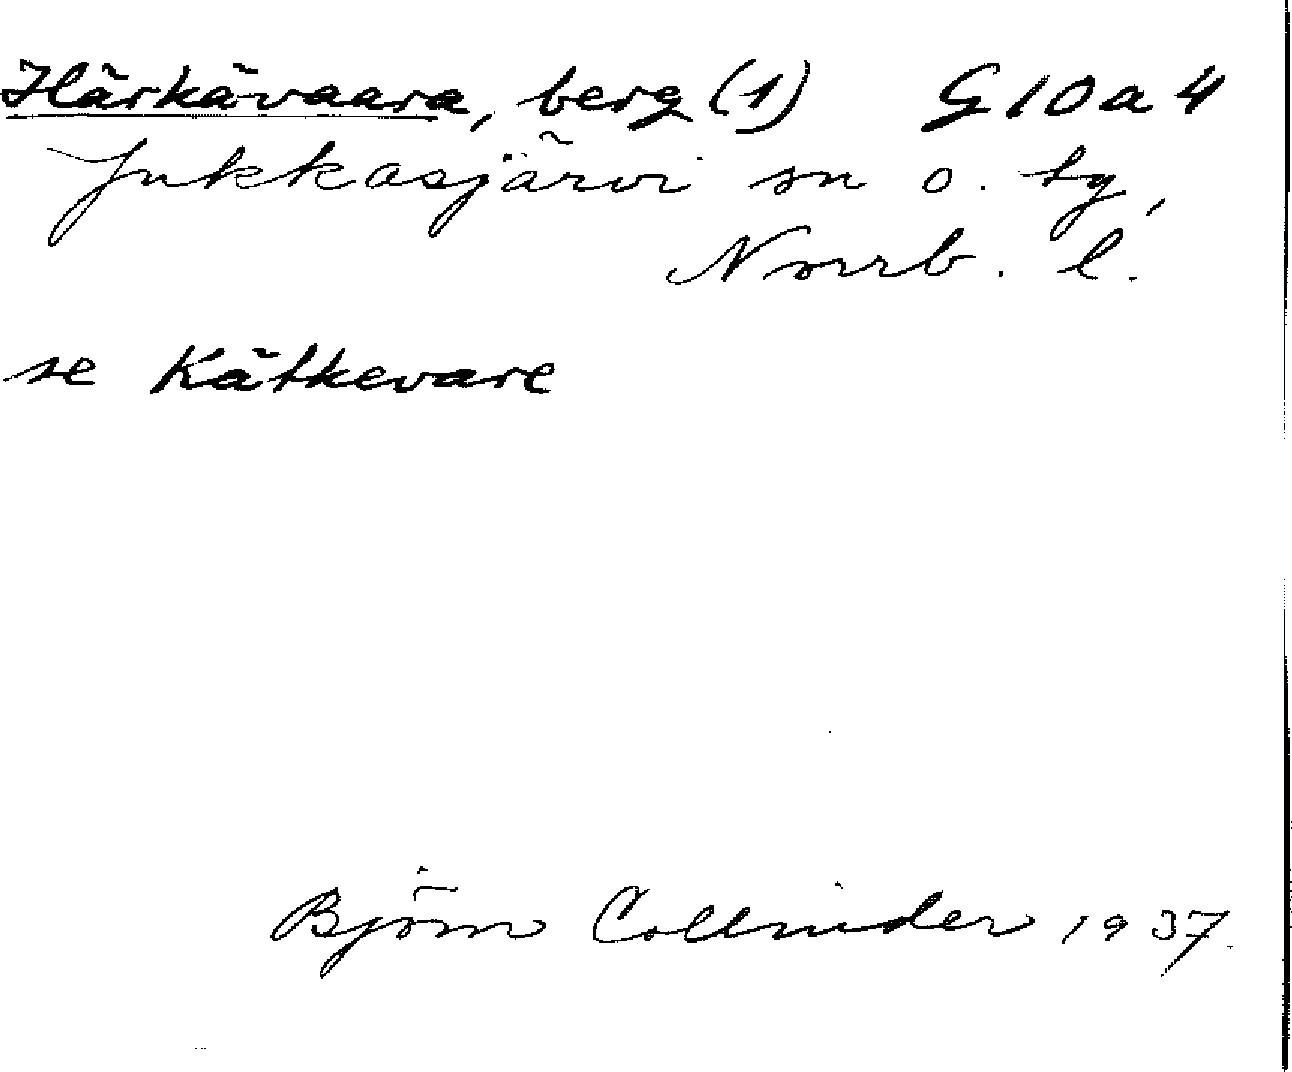 Härkävaara, berg (1) G 10 a 4
Jukkasjärvi sn o. tg,
Norrb. l.
se Kätkevare
Björn Collinder 1937.